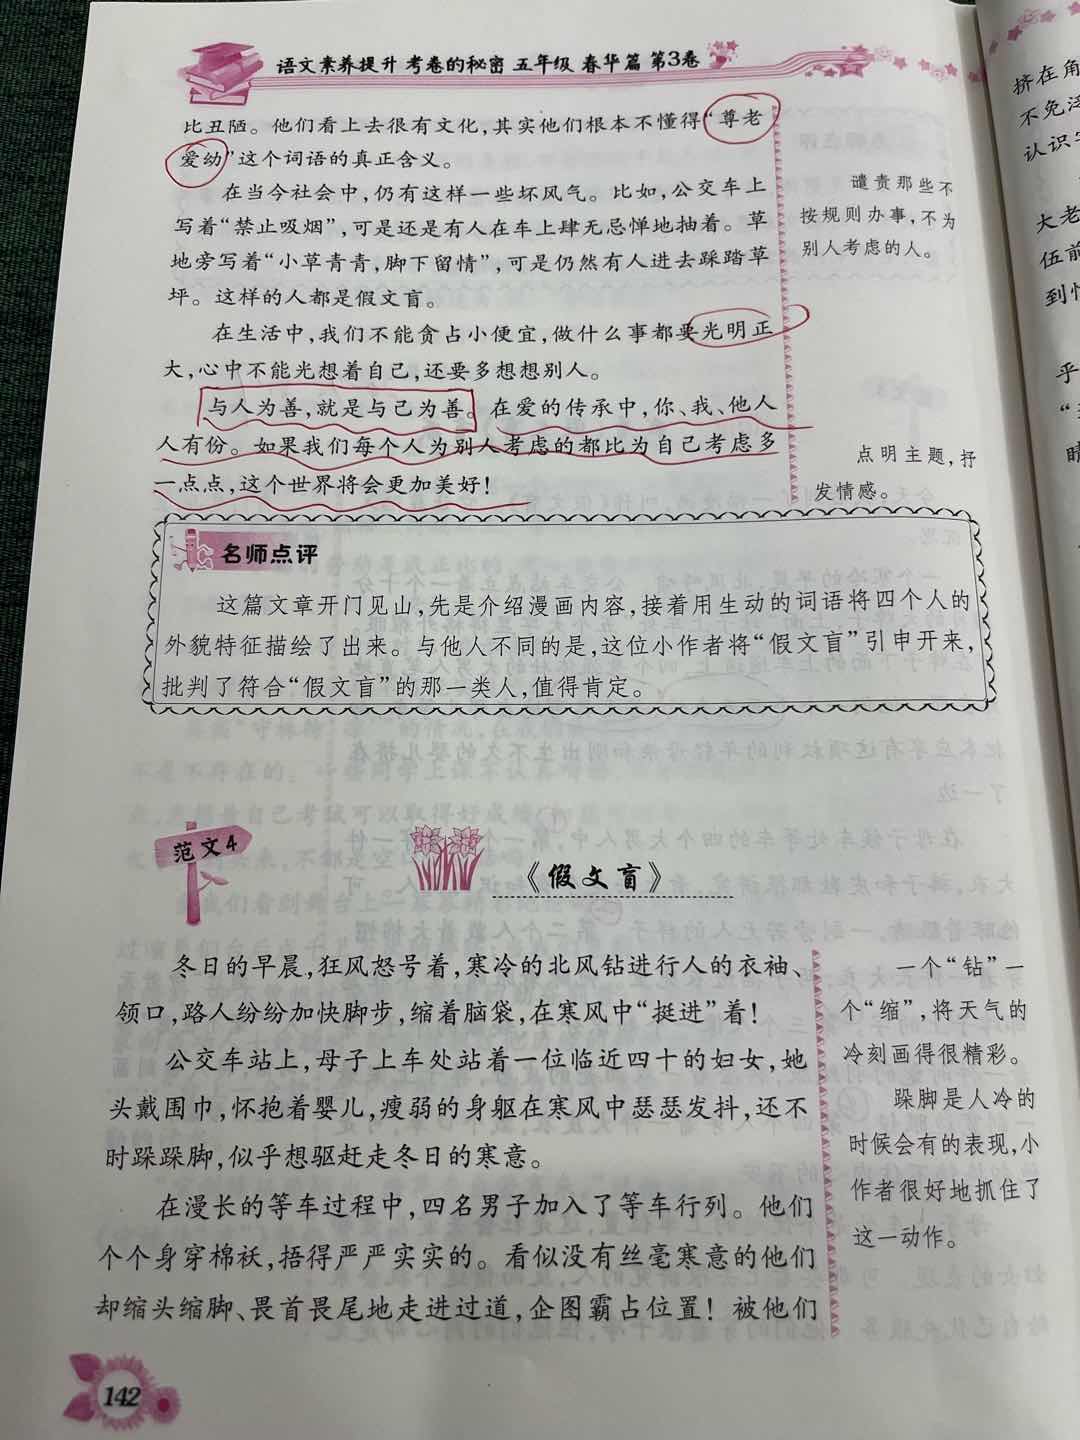 语文素养提升 考卷的秘密 五年级 春华篇 第3卷
比丑陋。他们看上去很有文化,其实他们根本不懂得“尊老
爱幼”这个词语的真正含义。
在当今社会中,仍有这样一些坏风气。比如,公交车上
写着“禁止吸烟”,可是还是有人在车上肆无忌惮地抽着。草
地旁写着“小草青青,脚下留情”,可是仍然有人进去踩踏草
坪。这样的人都是假文盲。
在生活中,我们不能贪占小便宜,做什么事都要光明正
大,心中不能光想着自己,还要多想想别人。
与人为善,就是与己为善。在爱的传承中,你、我、他人
人有份。如果我们每个人为别人考虑的都比为自己考虑多
一点点,这个世界将会更加美好!
谴责那些不
按规则办事,不为
别人考虑的人。
点明主题,抒
发情感。
名师点评
这篇文章开门见山,先是介绍漫画内容,接着用生动的词语将四个人的
外貌特征描绘了出来。与他人不同的是,这位小作者将“假文盲”引申开来,
批判了符合“假文盲”的那一类人,值得肯定。
范文4
《假文盲》
冬日的早晨,狂风怒号着,寒冷的北风钻进行人的衣袖、
领口,路人纷纷加快脚步,缩着脑袋,在寒风中“挺进”着!
公交车站上,母子上车处站着一位临近四十的妇女,她
头戴围巾,怀抱着婴儿,瘦弱的身躯在寒风中瑟瑟发抖,还不
时跺跺脚,似乎想驱赶走冬日的寒意。
在漫长的等车过程中,四名男子加入了等车行列。他们
个个身穿棉袄,捂得严严实实的。看似没有丝毫寒意的他们
却缩头缩脚、畏首畏尾地走进过道,企图霸占位置!被他们
一个“钻”一
个“缩”,将天气的
冷刻画得很精彩。
跺脚是人冷的
时候会有的表现,小
作者很好地抓住了
这一动作。
142
挤在角
认识
大老
伍前
到
乎